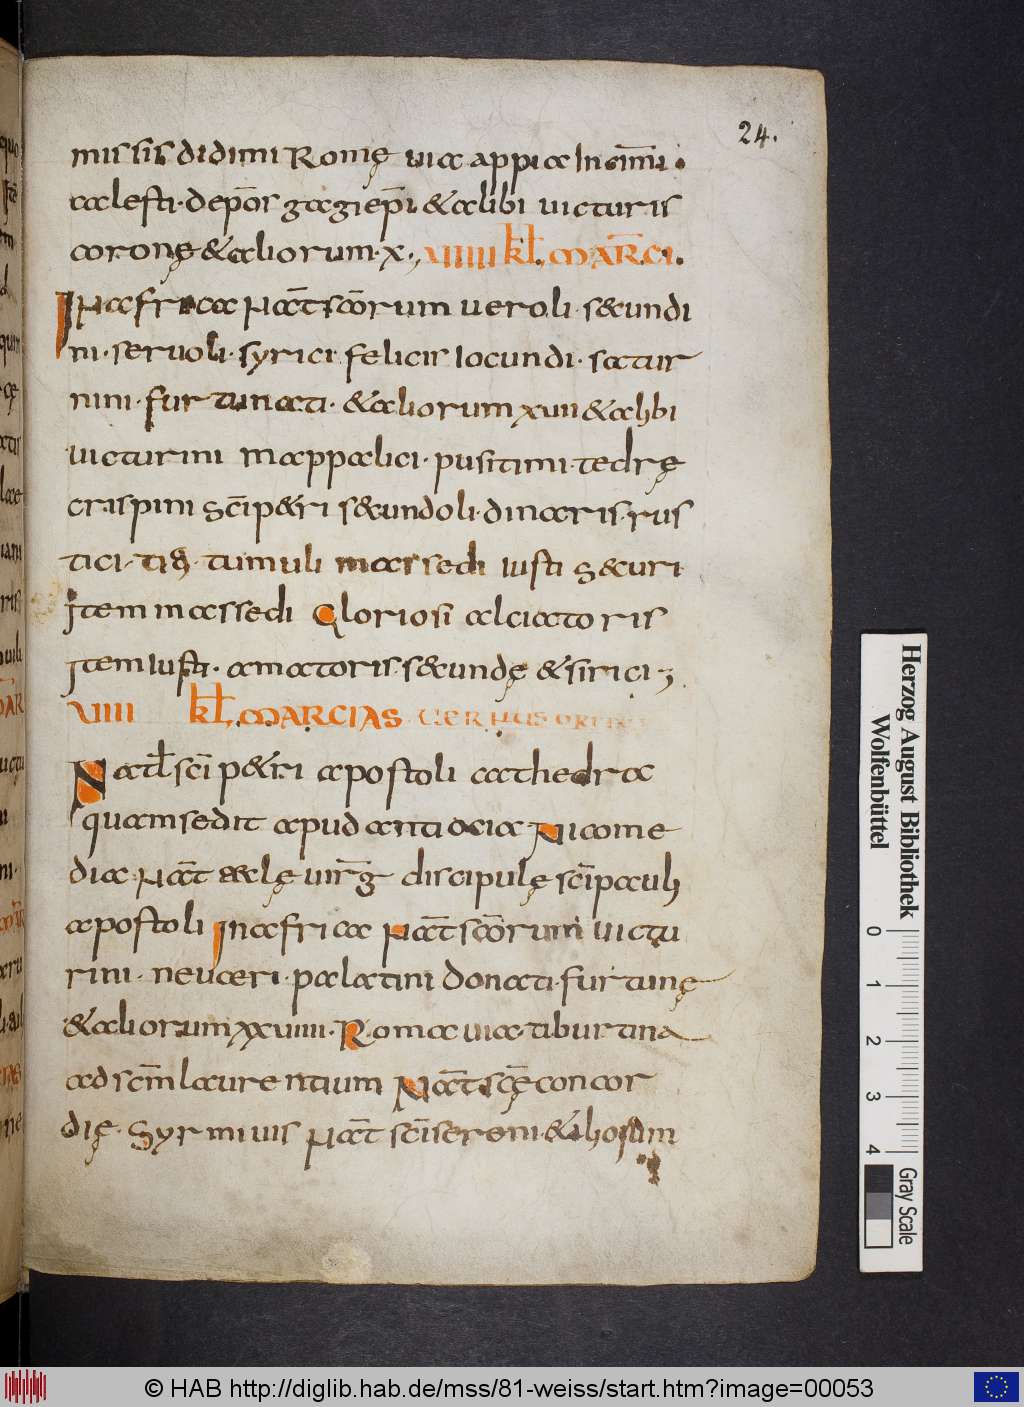 24.
mis sis didimi Romę uia appia In cimi
calesti· depōs gagi epī &alibi uicturis
coronę &aliorum· x·, VIIII kł. MAR̄CI.
IN africa NaT̄ scōrum ueroli· secundi
ni· seruoli· syrici felicis Iocundi· satur
nini· furtunati· &aliorum xuii &alibi
uicturini mappalici· pusitimi· tedrę
crispini scī p&ri secundoli· dinaris· rus
tici· titi· tumuli massedi iusti securi
Item massedi Gloriosi alciatoris
Item iusti· amatoris· secundę &sirici
VIIII kł. MARCIAS UERNUS ORITUR
Natł scī p&ri apostoli cathedra
quam sedit apud antiocia Nicome
dia NaT̄ teclę uirḡ discipulę scī pauli
apostoli In africa NaT̄ scōrum uictu
rini· neuceri· palatini Donati· furtunę
&aliorum xxuiiii· Romae uia· tiburtina
ad scm̄ laurentium NaT̄ scę concor
dię· Syrmiuis NaT̄ scī sereni· &ihosum
Herzog August Bibliothek
Wolfenbüttel
0 1 2 3 4
Gray Scale
© HAB http://diglib.hab.de/mss/81-weiss/start.htm?image=00053